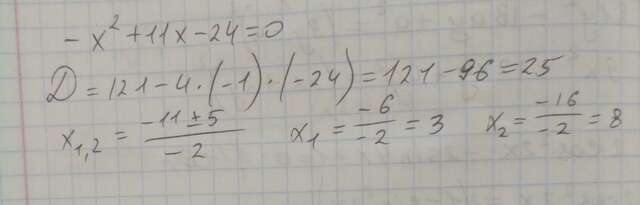 - x² + 11x - 24 = 0
D = 121 - 4 · (-1) · (-24) = 121 - 96 = 25
x₁,₂ = (-11 ± 5)/(-2) x₁ = (-6)/(-2) = 3 x₂ = (-16)/(-2) = 8